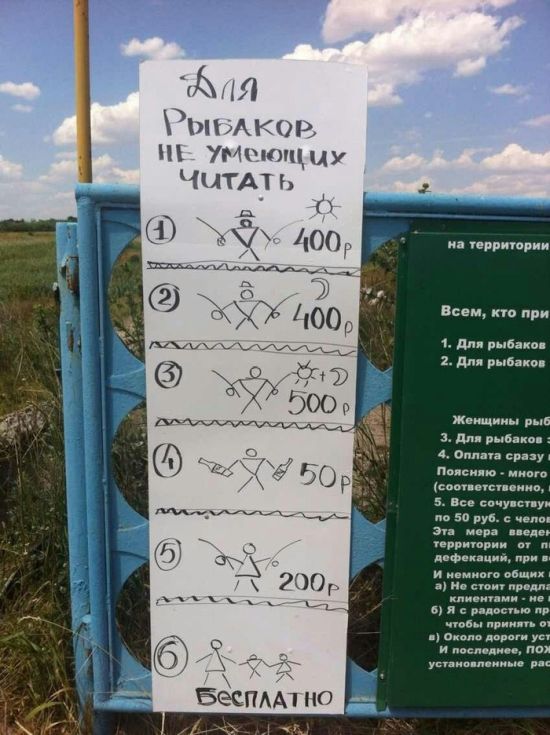 Для
Рыбаков
не умеющих
читать
1 400р
2 400р
3 + 500р
4 50р
5 200р
6
Бесплатно
на территории
Всем, кто при
1. Для рыбаков
2. Для рыбаков
Женщины рыб
3. Для рыбаков з
4. Оплата сразу
Поясняю - много
(соответственно,
5. Все сочувствую
по 50 руб. с чело
Эта мера введен
территории от
дефекаций, при
И немного общих
а) Не стоит предла
клиентами - не
б) Я с радостью пр
чтобы принять от
в) Около дороги уст
И последнее, ПОЖ
установленные рас